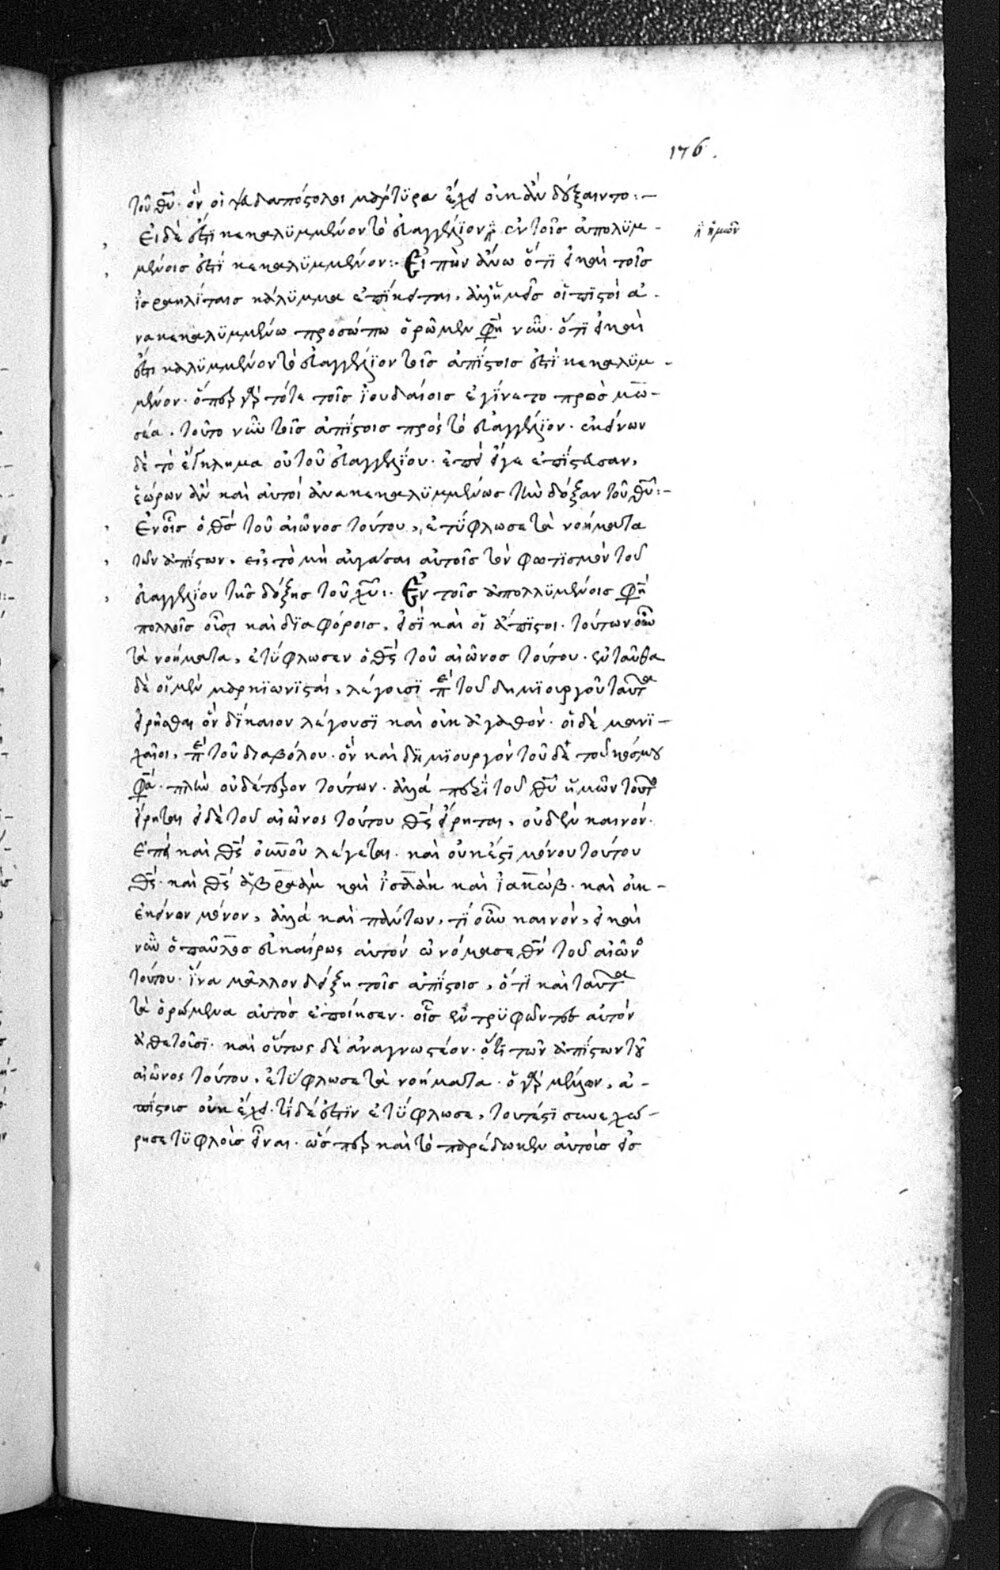 176.
τοῦ θῦ. ὃν οἱ ψευδαπόστολοι μάρτυρα ἔχειν οὐκ ἂν δόξαιντο:—
Εἰ δὲ ἔστι κεκαλυμμένον τὸ εὐαγγέλιον, ἐν τοῖς ἀπολυμ-
ἡμῶν
μένοις ἐστὶ κεκαλυμμένον:· Εἰπὼν ἄνω ὅτι ἐκεῖ τοῖς
ἰσραηλίταις κάλυμμα ἐπίκειται, ἀλλ' ἡμεῖς οἱ πιστοὶ ἀ-
νακεκαλυμμένω προσώπω ὁρῶμεν φησὶ νῦν. ὅτι ἐκεῖ
ἐστι καλυμμένον τὸ εὐαγγέλιον τοῖς ἀπίστοις ἐστὶ κεκαλυμ-
μένον. ὅπερ γὰρ τότε τοῖς ἰουδαίοις ἐγίνετο πρὸς μω-
σέα. τοῦτο νῦν τοῖς ἀπίστοις πρὸς τὸ εὐαγγέλιον. ἐκείνων
δὲ τὸ οὐ τοῦ εὐαγγελίου. ἐπεὶ εἴγε ἐπίστευσαν,
ἑώρων ἂν καὶ αὐτοὶ ἀνακεκαλυμμένως τὴν δόξαν τοῦ θῦ:—
Ἐν οἷς ὁ θς τοῦ αἰῶνος τούτου, ἐτύφλωσε τὰ νοήματα
τῶν ἀπίστων. εἰς τὸ μὴ αὐγάσαι αὐτοῖς τὸν φωτισμὸν τοῦ
εὐαγγελίου τῆς δόξης τοῦ χυ:· Ἐν τοῖς ἀπολλυμένοις φησὶ
πολλοῖς οὖσι καὶ διαφόροις, εἰσὶ καὶ οἱ ἄπιστοι. τούτων οὖν
τὰ νοήματα, ἐτύφλωσεν ὁ θς τοῦ αἰῶνος τούτου. ἐνταῦθα
δὲ οἱ μὲν μαρκιωνισταί, λέγουσι περὶ τοῦ δημιουργοῦ ταῦτα
εἰρῆσθαι ὃν δίκαιον λέγουσι καὶ οὐκ ἀγαθόν. οἱ δὲ μανι-
χαῖοι, περὶ τοῦ διαβόλου. ὃν καὶ δημιουργὸν τοῦδε τοῦ κόσμου
φασί. πλὴν οὐδέτερον τούτων. ἀλλὰ περὶ τοῦ θῦ ἡμῶν τοῦτο
εἴρηται εἰ δὲ τοῦ αἰῶνος τούτου θς εἴρηται, οὐδὲν καινόν.
ἐπεὶ καὶ θς οὐνοῦ λέγεται. καὶ οὐκ ἔστι μόνου τούτου
θς. καὶ θς ἀβραὰμ καὶ ἰσαὰκ καὶ ἰακώβ. καὶ οὐκ-
ἐκείνων μόνον, ἀλλὰ καὶ πάντων, τί οὖν καινὸν, εἰ καὶ
νῦν ὁ παῦλος εὐκαίρως αὐτὸν ὠνόμασε θν τοῦ αἰῶνος
τούτου. ἵνα μᾶλλον δείξη τοῖς ἀπίστοις, ὅτι καὶ ταῦτα
τὰ ὁρώμενα αὐτὸς ἐποίησεν. οἷς ἐντρυφῶντες αὐτὸν
ἀθετοῦσι. καὶ οὕτως δὲ ἀναγνωστέον. ὅτι τῶν ἀπίστων τοῦ
αἰῶνος τούτου, ἐτύφλωσε τὰ νοήματα. ὁ γὰρ μέλλων, ἀ-
πίστοις οὐκ ἔχει. τί δέ ἐστιν ἐτύφλωσε, τουτέστι συνεχώ-
ρησε τυφλοὺς εἶναι. ὥσπερ καὶ τὸ παρέδωκεν αὐτοὺς εἰς